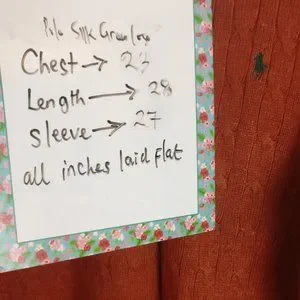 Polo Silk
Chest → 23
Length → 28
Sleeve → 27
all inches laid flat